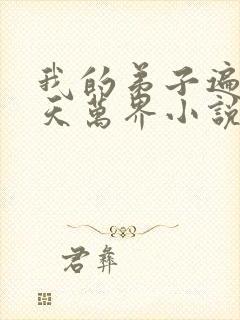 我的弟子遍
天萬界小說
君彝